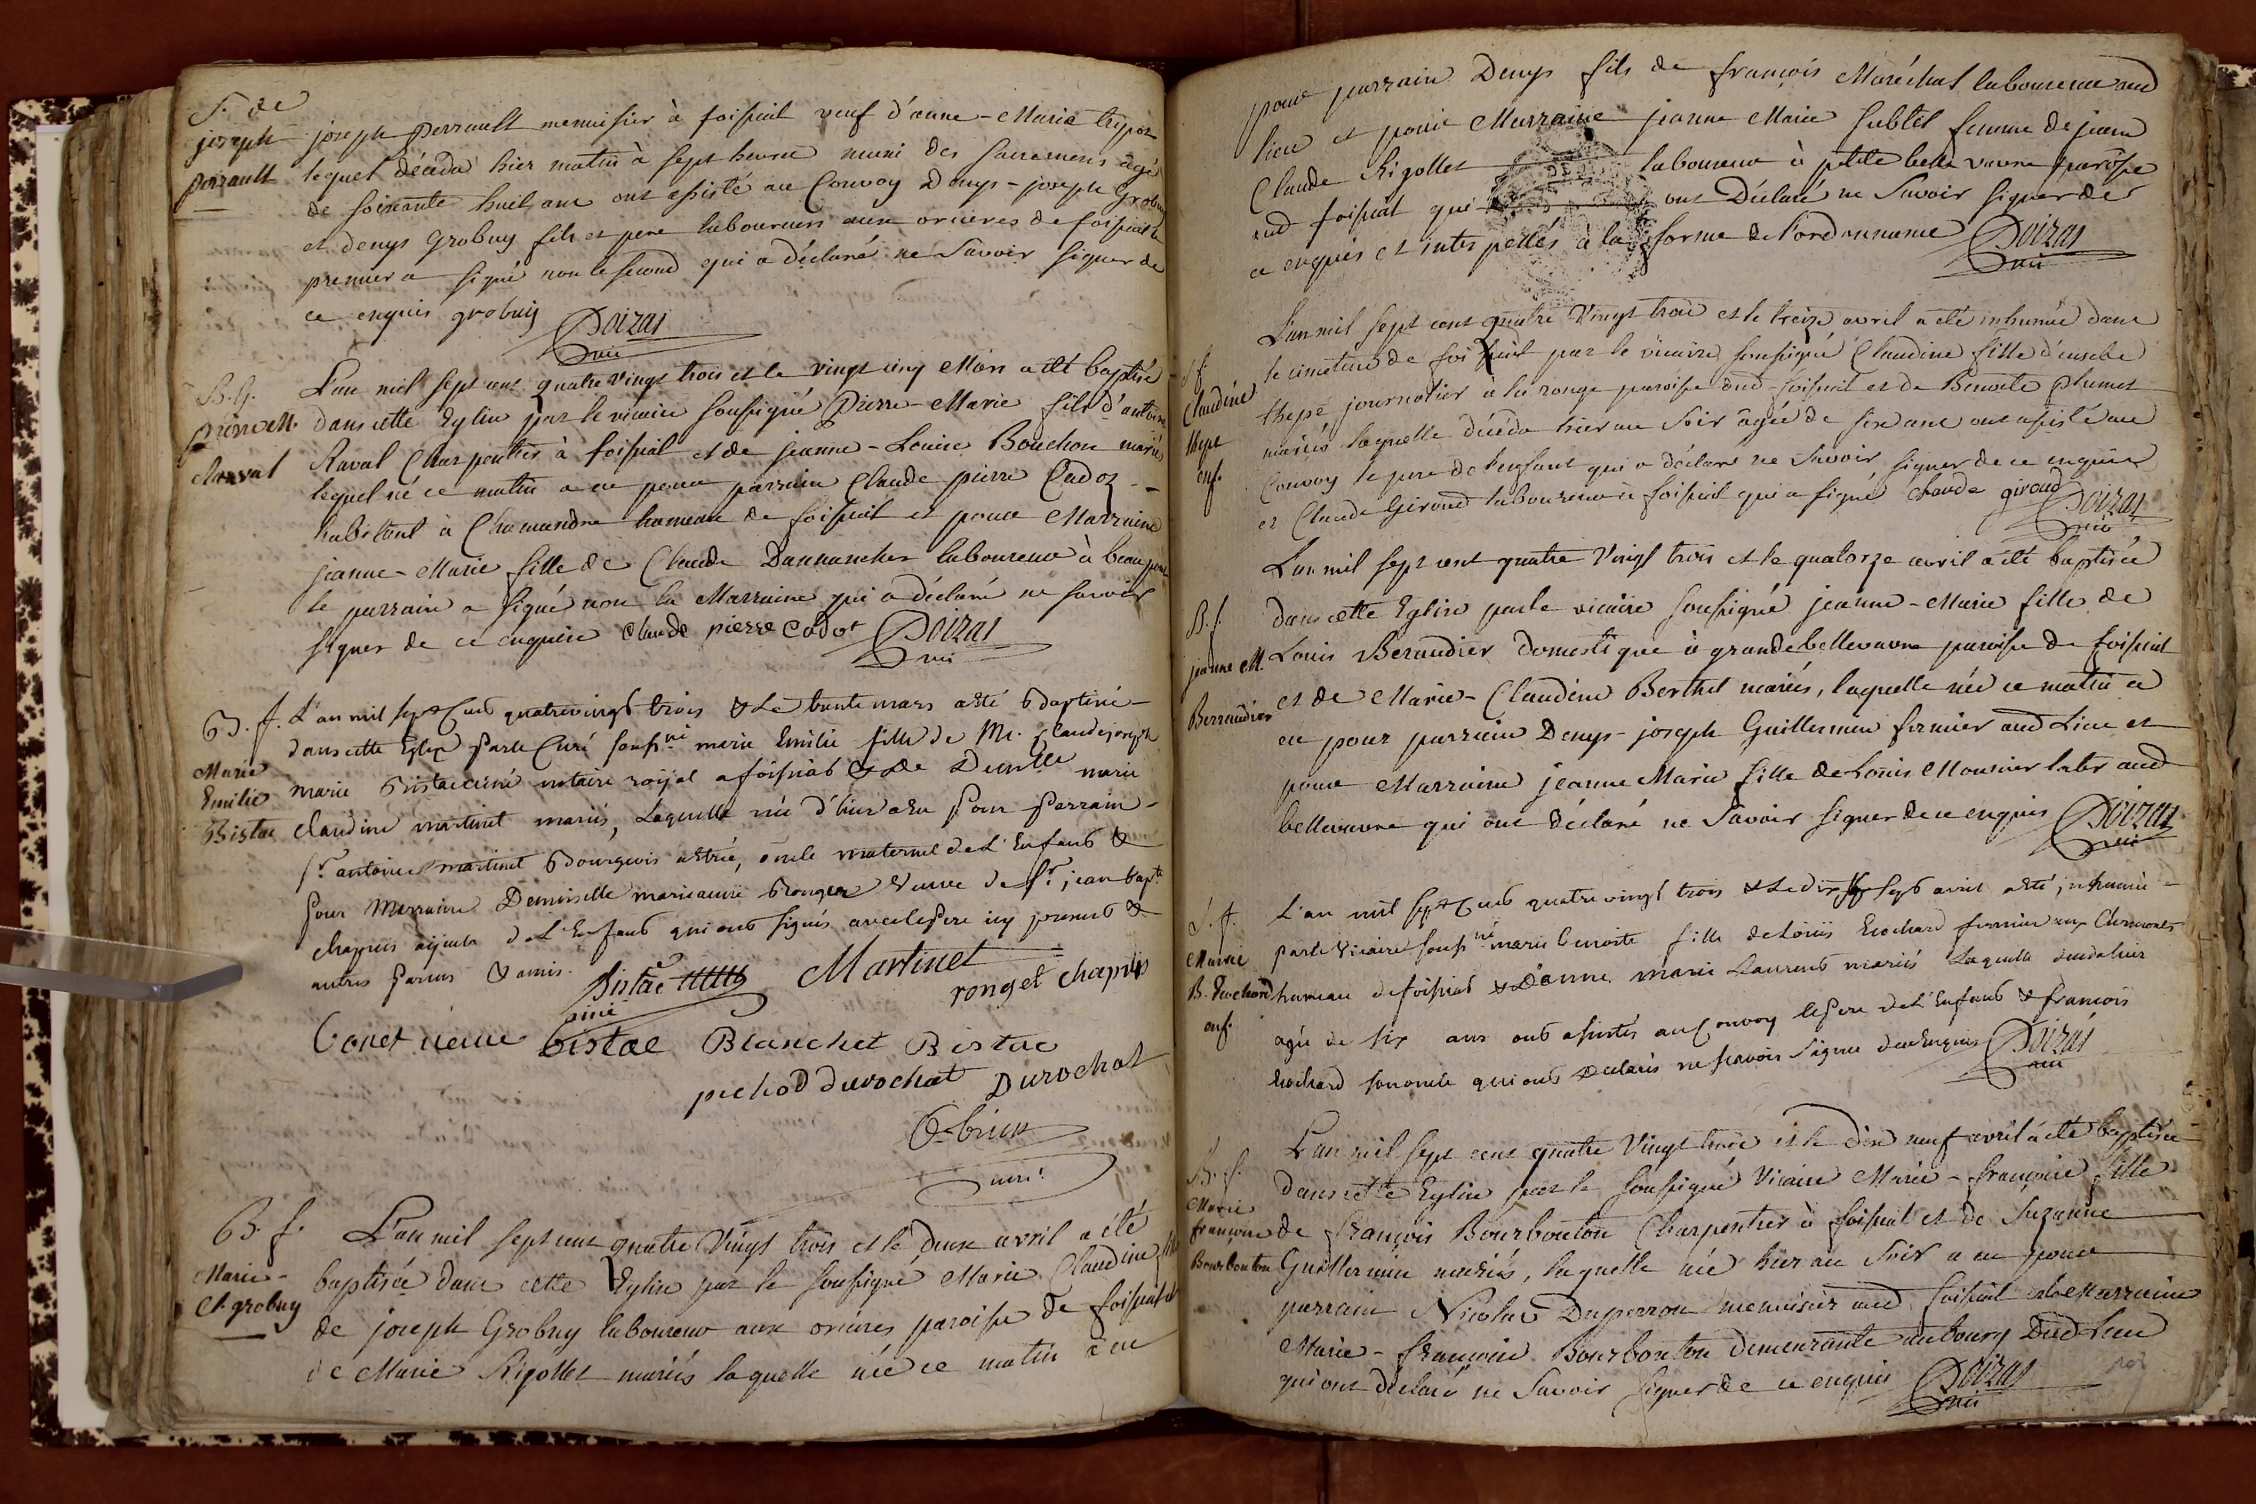 S. de
joseph
perrault
joseph perrault menuisier à foissiat veuf d'anne-Marie
lequel décéda hier matin à sept heures muni des sacremens âgé
de soixante huit ans ont assisté au Convoy Denys-joseph Grobuy
et denys Grobuy fils et pere laboureurs aux orcieres de foissiat le
premier a signé non le second qui a déclaré ne Savoir signer de
ce enquis grobuy Doizat
vic
B. g.
Pierre M.
Raval
L'an mil sept cent quatre vingt trois et le vingt cinq Mars a été baptisé
dans cette Eglise par le vicaire soussigné Pierre-Marie fils d'antoine
Raval Charpentier à foissiat et de jeanne-Louise Bouchon mariés
lequel né ce matin a eu pour parrain Claude pierre Cadot
habitant à Chamandre hameau de foissiat et pour Marraine
jeanne-Marie fille de Claude Dannancher laboureur à beaupont
le parrain a signé non la Marraine qui a déclaré ne savoir
signer de ce enquise Claude pierre Cadot Doizat
vic
B. f.
Marie
Emilie
Bistac
L'an mil sept Cens quatrevingt trois & Le trente mars a été Baptisé
dans cette Eglise par le Curé souss.né marie Emilie fille de Me. Claude joseph
marie Bistac ainé notaire royal a foissiat & de Demlle marie
claudine martinet mariés, Laquelle née d'hier a Eu pour Parrain
Sr. antoine martinet Bourgeois, oncle maternel de L'Enfant &
pour Marraine Demoiselle marieanne Ronget Veuve de Sr. jean bapte
chapuis ayeule de L'Enfant qui ont signés avec le pere icy present &
autres parens & amis.
Bistac Martinet
ainé ronget chapuis
bistac Blanchet Bistac
pichod durochat Durochat
curé
B. f.
Marie-
Cl. grobuy
L'an mil sept cent quatre Vingt trois et le deux avril a été
baptisée dans cette Eglise par le soussigné Marie Claudine fille
de joseph Grobuy laboureur aux orcieres paroisse de foissiat et
de Marie Rigollet mariés laquelle née ce matin a eu
pour parrain Denys fils de françois Maréchal laboureur aud
lieu et pour Marraine jeanne Marie Sublet femme de jean
Claude Rigollet laboureur à petite belle vavre paroisse
dud foissiat qui ont Déclaré ne Savoir signer de
ce enquis et interpellés à la forme de l'ordonnance Doizat
vic
S f.
Claudine
thepe
enf.
L'an mil sept cent quatre Vingt trois et le treize avril a été inhumée dans
le cimetiere de foissiat par le vicaire soussigné Claudine fille d'eusebe
thepe journalier à la ronge paroisse dud foissiat et de Benoite plumet
mariés laquelle décéda hier au Soir âgée de six ans ont assisté au
Convoy le pere de l'enfant qui a déclaré ne Savoir signer de ce enquis
et Claude Giroud laboureur à foissiat qui a signé claude giroud Doizat
vic
B. f.
jeanne M.
Beraudier
L'an mil sept cent quatre Vingt trois et le quatorze avril a été baptisée
dans cette Eglise par le vicaire soussigné jeanne-Marie fille de
Louis Beraudier Domestique à grande bellevavre paroisse de foissiat
et de Marie-Claudine Berthet mariés, laquelle née ce matin a
eu pour parrain Denys-joseph Guillermin fermier aud Lieu et
pour Marraine jeanne Marie fille de Louis Mounier aud
bellevavre qui ont déclaré ne Savoir signer de ce enquis Doizat
vic
S. f.
Marie
B. Enochard
enf.
L'an mil sept Cens quatre vingt trois & Le dix sept avril a été inhumée
par le Vicaire souss.né marie benoite fille de Loüis Enochard fermier aux
hameau de foissiat & d'anne marie Laurent mariés Laquelle décéda hier
agée de six ans ont assistés au Convoy le Pere de L'Enfant & françois
Enochard son oncle qui ont declarés ne scavoir signer de ce Enquis Doizat
vic
B. f.
Marie
françoise
Bourbouton
L'an mil sept cent quatre Vingt trois et le dix neuf avril a été baptisée
dans cette Eglise par le soussigné Vicaire Marie-françoise fille
de françois Bourbouton Charpentier à foissiat et de Suzanne
Guillermin mariés, laquelle née hier au Soir a eu pour
parrain Nicolas Duperron menuisier aud foissiat et de Marraine
Marie-françoise Bourbouton demeurante au bourg Dud Lieu
qui ont déclaré ne Savoir signer de ce enquis Doizat
vic